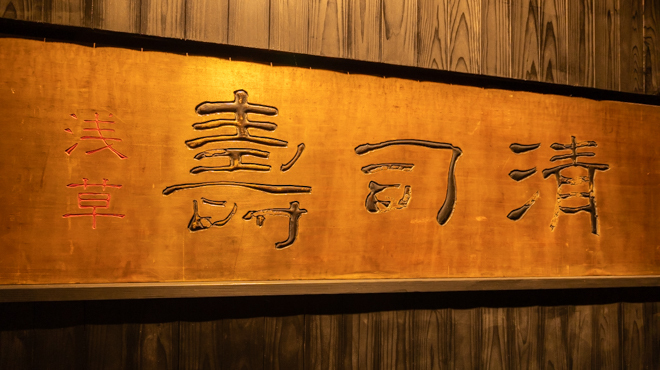 浅草
壽司清